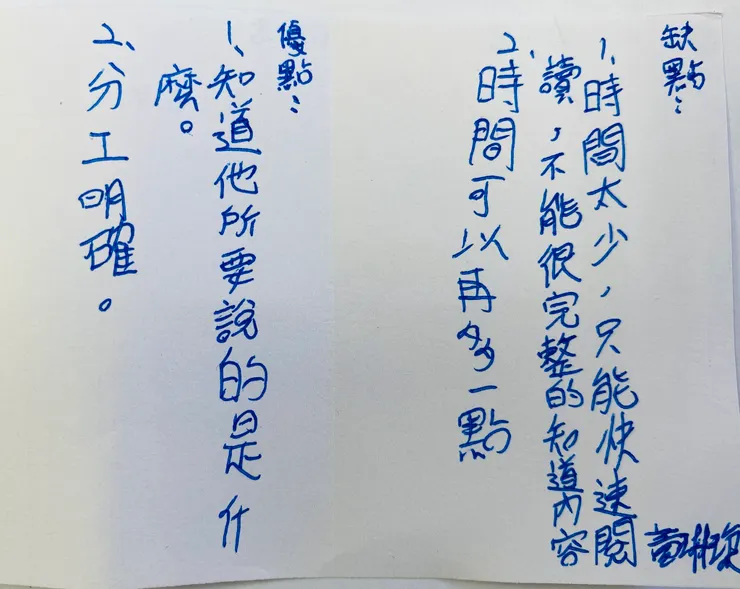 缺點：
1、時間太少，只能快速閱
讀，不能很完整的知道內容
2、時間可以再多一點
優點：
1、知道他所要說的是什
麼。
2、分工明確。